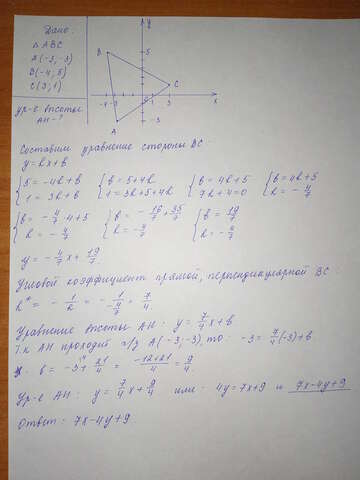 Дано:
△ABC
A(-3;-3)
B(-4;5)
C(3;1)
ур-е высоты
AH-?
y
B
5
C
-4 -3
0
3
x
A
-3
Составим уравнение стороны BC:
y=kx+b
{5=-4k+b {b=5+4k {b=4k+5 {b=4k+5
{1=3k+b {1=3k+5+4k {7k+4=0 {k=-4/7
{b=-4/7·4+5 {b=-16/7+35/7 {b=19/7
{k=-4/7 {k=-4/7 {k=-4/7
y=-4/7x+19/7.
Угловой коэффициент прямой, перпендикулярной BC:
k*=-1/k=-1/(-4/7)=7/4.
Уравнение высоты AH: y=7/4x+b
Т.к AH проходит ч/з A(-3;-3), то: -3=7/4(-3)+b
b=-3+21/4=(-12+21)/4=9/4.
Ур-е AH: y=7/4x+9/4 или 4y=7x+9 и 7x-4y+9
Ответ: 7x-4y+9